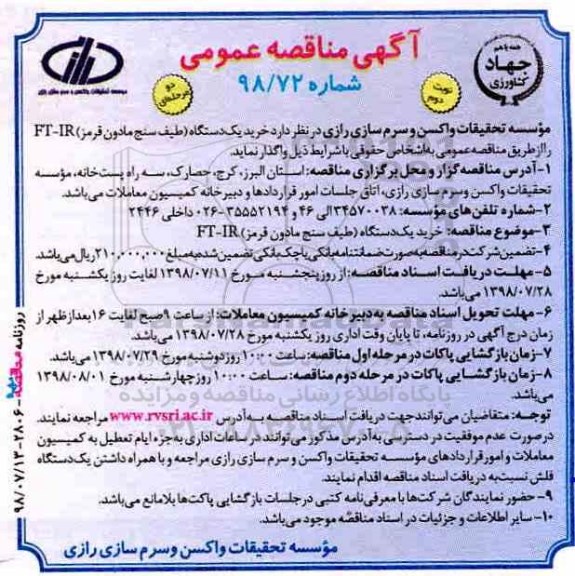 آگهی مناقصه عمومی
شماره ۹۸/۷۲
دو مرحله‌ای
نوبت دوم
همه با هم
جهاد کشاورزی
مؤسسه تحقیقات واکسن و سرم سازی رازی
مؤسسه تحقیقات واکسن و سرم سازی رازی در نظر دارد خرید یک دستگاه (طیف سنج مادون قرمز) FT-IR
را از طریق مناقصه عمومی به اشخاص حقوقی با شرایط ذیل واگذار نماید.
۱-آدرس مناقصه گزار و محل برگزاری مناقصه: استان البرز، کرج، حصارک، سه راه پست خانه، مؤسسه
تحقیقات واکسن وسرم سازی رازی، اتاق جلسات امور قراردادها و دبیرخانه کمیسیون معاملات می‌باشد.
۲-شماره تلفن‌های مؤسسه: ۳۴۵۷۰۰۳۸ الی ۴۶ و ۳۵۵۵۲۱۹۴-۰۲۶ داخلی ۲۴۴۶
۳-موضوع مناقصه: خرید یک دستگاه (طیف سنج مادون قرمز) FT-IR
۴-تضمین شرکت در مناقصه به صورت ضمانتنامه بانکی یا چک بانکی تضمین شده به مبلغ ۲۱۰,۰۰۰,۰۰۰ ریال می‌باشد.
۵-مهلت دریافت اسناد مناقصه: از روز پنجشنبه مورخ ۱۳۹۸/۰۷/۱۱ لغایت روز یکشنبه مورخ
۱۳۹۸/۰۷/۲۸ می‌باشد.
۶-مهلت تحویل اسناد مناقصه به دبیرخانه کمیسیون معاملات: از ساعت ۹ صبح لغایت ۱۶ بعد از ظهر از
زمان درج آگهی در روزنامه، تا پایان وقت اداری روز یکشنبه مورخ ۱۳۹۸/۰۷/۲۸ می‌باشد.
۷-زمان بازگشایی پاکات در مرحله اول مناقصه: ساعت ۱۰:۰۰ روز دوشنبه مورخ ۱۳۹۸/۰۷/۲۹ می‌باشد.
۸-زمان بازگشایی پاکات در مرحله دوم مناقصه: ساعت ۱۰:۰۰ روز چهارشنبه مورخ ۱۳۹۸/۰۸/۰۱
می‌باشد.
توجه: متقاضیان می‌توانند جهت دریافت اسناد مناقصه به آدرس www.rvsri.ac.ir مراجعه نمایند.
در صورت عدم موفقیت در دسترسی به آدرس مذکور می‌توانند در ساعات اداری به جزء ایام تعطیل به کمیسیون
معاملات و امور قراردادهای مؤسسه تحقیقات واکسن و سرم سازی رازی مراجعه و با همراه داشتن یک دستگاه
فلش نسبت به دریافت اسناد مناقصه اقدام نمایند.
۹-حضور نمایندگان شرکت‌ها با معرفی‌نامه کتبی در جلسات بازگشایی پاکت‌ها بلامانع می‌باشد.
۱۰-سایر اطلاعات و جزئیات در اسناد مناقصه موجود می‌باشد.
مؤسسه تحقیقات واکسن و سرم سازی رازی
روزنامه مناقصه - ۲۸۰۶ - ۹۸/۰۷/۱۳
پایگاه اطلاع رسانی مناقصه و مزایده